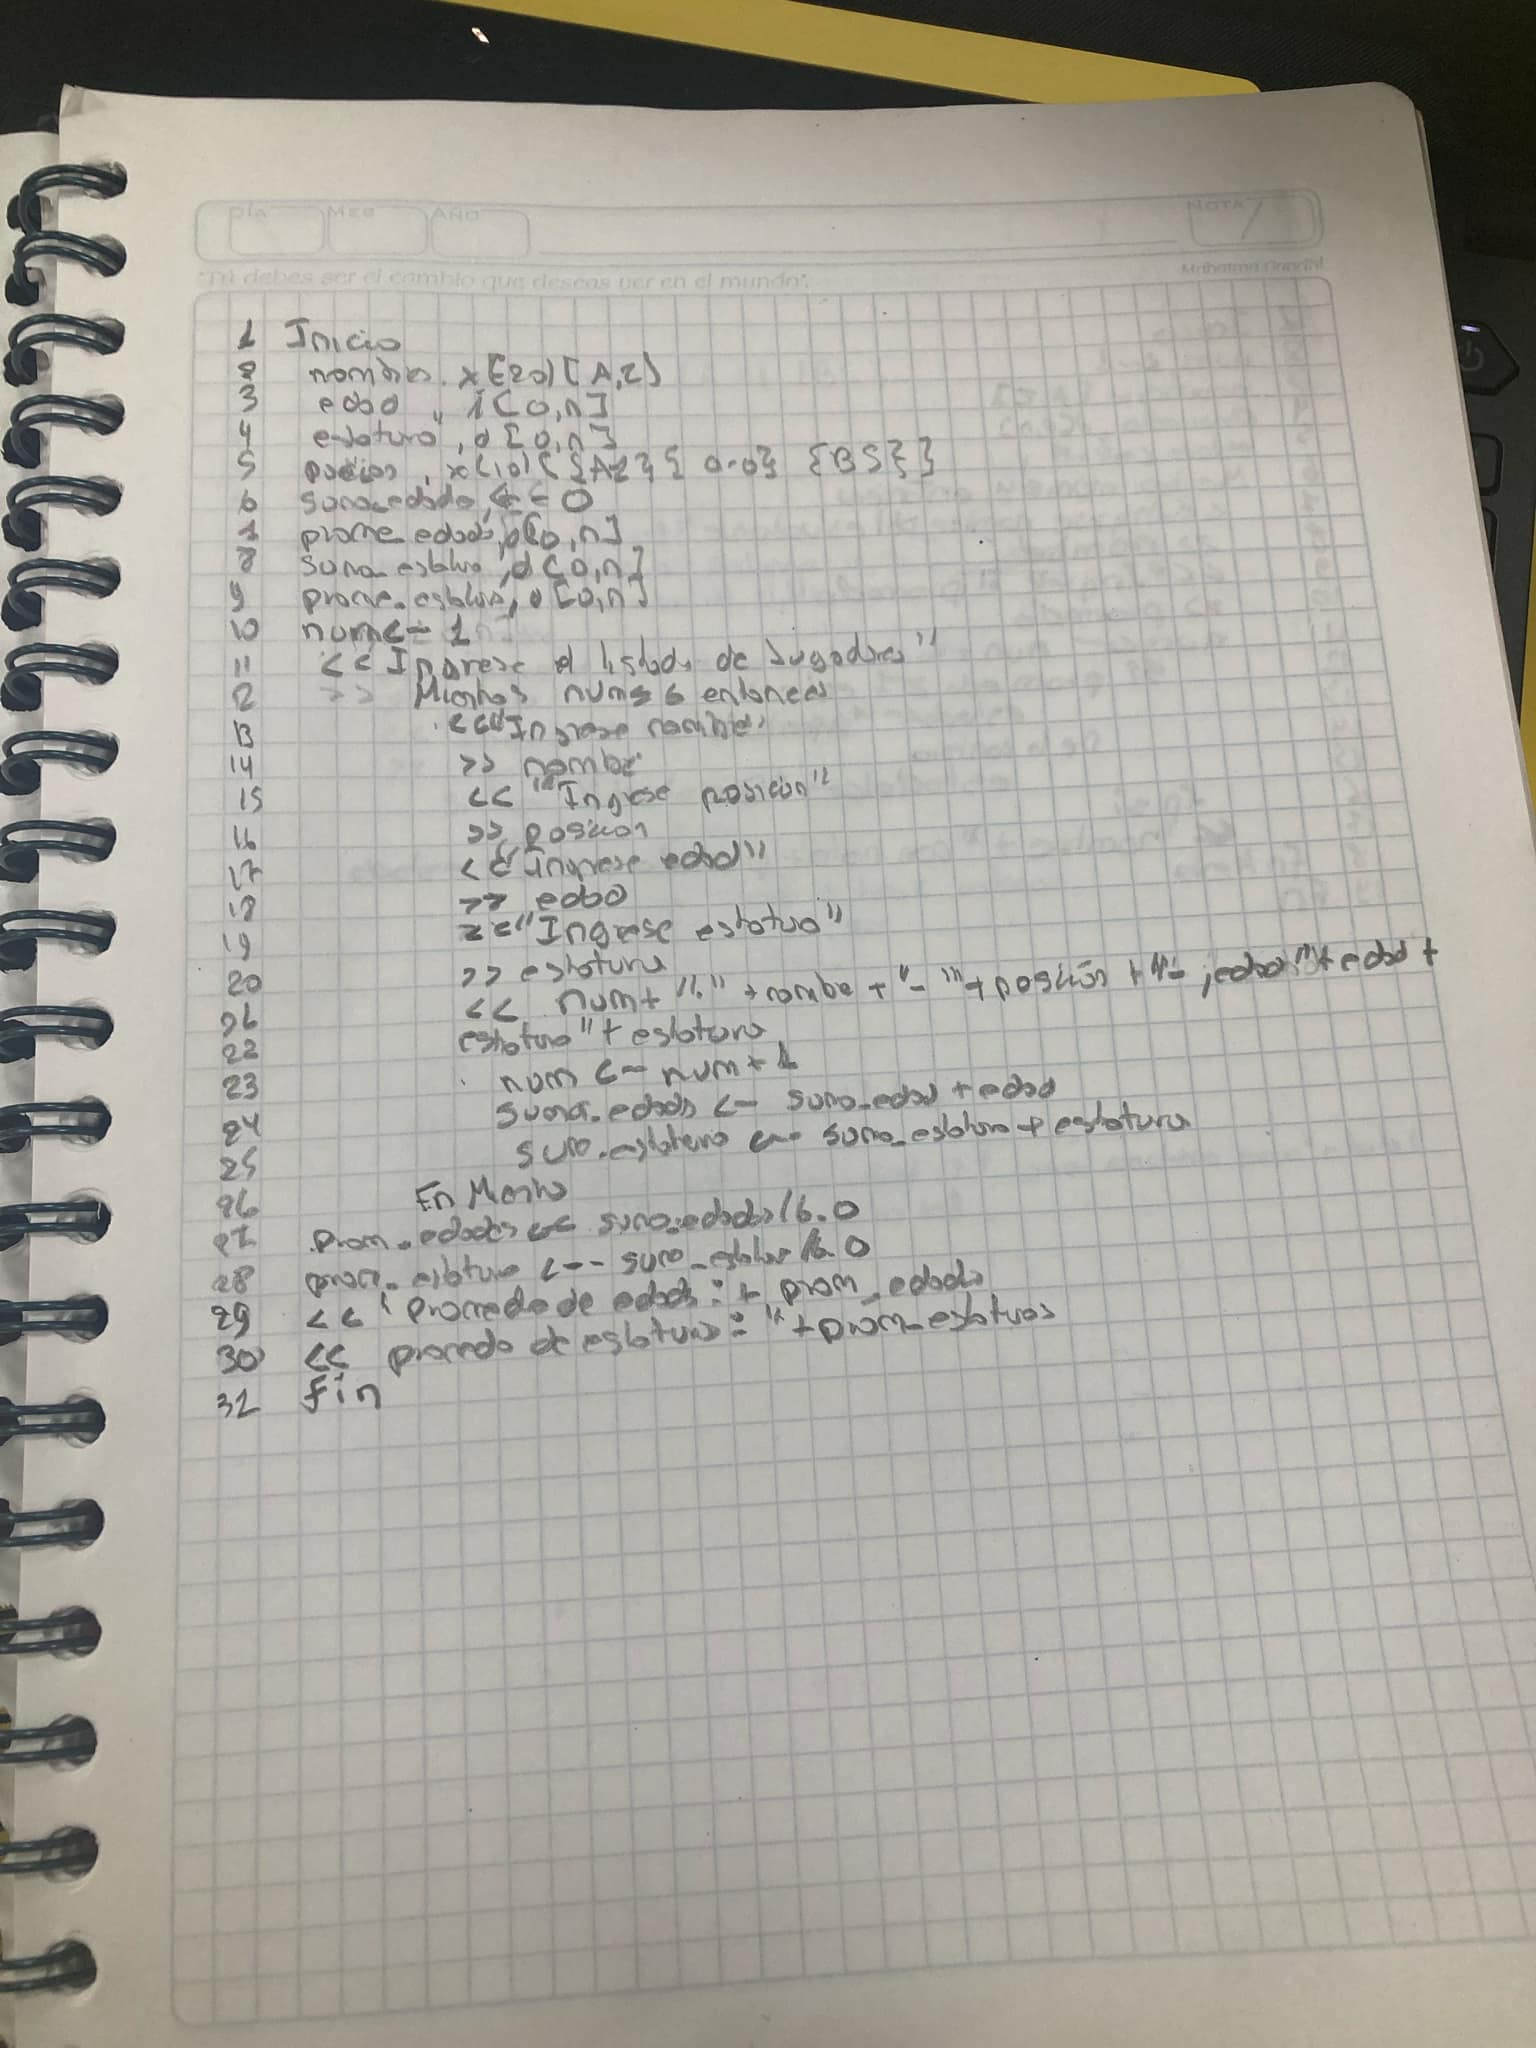 DÍA MES AÑO NOTA
"Tú debes ser el cambio que deseas ver en el mundo". Mahatma Gandhi
1 Inicio
2 nombre. x[20][A,Z]
3 edad, i[0,n]
4 estatura, d[0,n]
5 x(10)[{AZ}{ 0-0} {BS}]
6 suma_edades, ← 0
7 prome_edads, d[0,n]
8 suma_estatura, d[0,n]
9 prome_estatura, d[0,n]
10 num<- 1
11 << Ingrese el listado de Jugadores"
12 >> Mientras num≤6 entonces
13 <<"Ingrese nombre"
14 >> nombre
15 << "Ingrese posicion"
16 >> posicion
17 <<"Ingrese edad"
18 >> edad
19 <<"Ingrese estatura"
20 >> estatura
21 << num+ "." + nombre + "-" + posición + "- ;edad" + edad +
22 estatura" + estatura
23 num <- num + 1
24 suma_edads <- suma_edad + edad
25 sum_estatura <- suma_estatura + estatura
26 En Mientras
27 prom_edades << suma_edads/6.0
28 prom_estatura <-- suma_estatura/6.0
29 << "Promedio de edads: + prom_edads
30 << promedio de estaturas: "+prom_estaturas
31 Fin